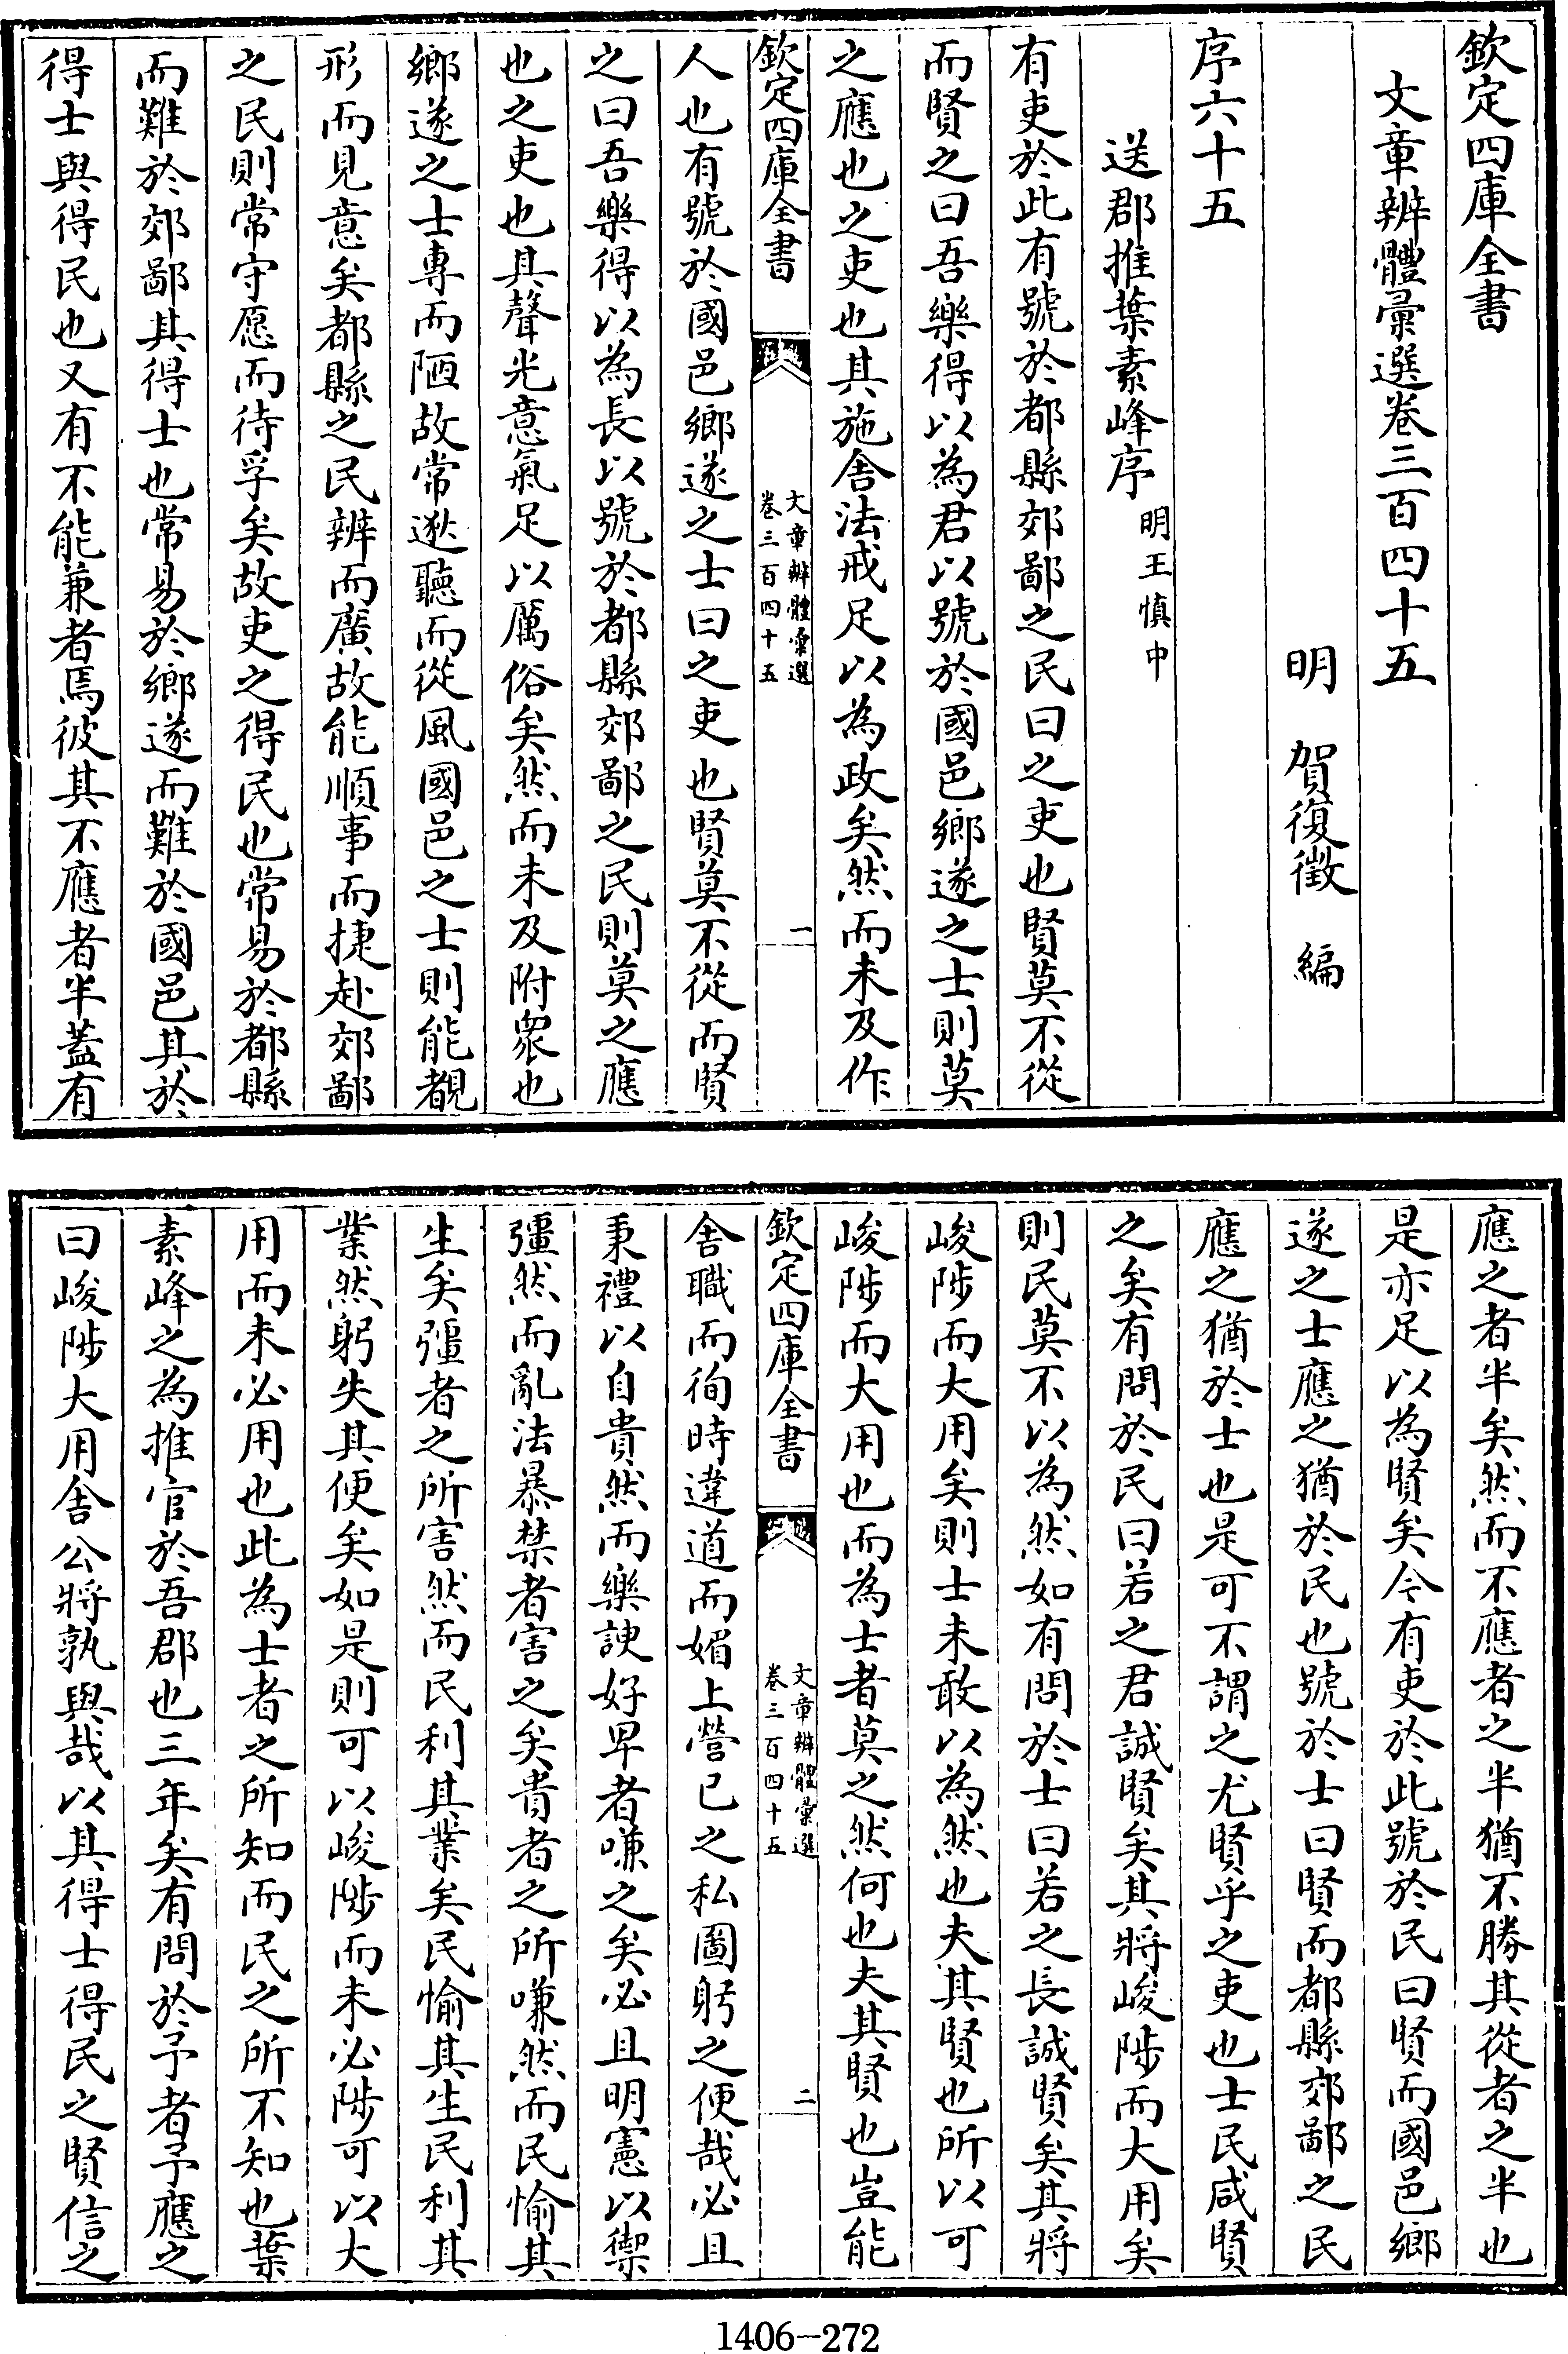 欽定四庫全書
文章辨體彙選卷三百四十五
明　賀復徵　編
序六十五
送郡推葉素峰序明王慎中
有吏於此有號於都縣郊鄙之民曰之吏也賢莫不從
而賢之曰吾樂得以為君以號於國邑鄉遂之士則莫
之應也之吏也其施舍法戒足以為政矣然而未及作
欽定四庫全書
文章辨體彙選
卷三百四十五
一
人也有號於國邑鄉遂之士曰之吏也賢莫不從而賢
之曰吾樂得以為長以號於都縣郊鄙之民則莫之應
也之吏也其聲光意氣足以厲俗矣然而未及附衆也
鄉遂之士專而陋故常逖聽而從風國邑之士則能覩
形而見意矣都縣之民辨而廣故能順事而捷赴郊鄙
之民則常守愿而待孚矣故吏之得民也常易於都縣
而難於郊鄙其得士也常易於鄉遂而難於國邑其於
得士與得民也又有不能兼者焉彼其不應者半蓋有
應之者半矣然而不應者之半猶不勝其從者之半也
是亦足以為賢矣今有吏於此號於民曰賢而國邑鄉
遂之士應之猶於民也號於士曰賢而都縣郊鄙之民
應之猶於士也是可不謂之尤賢乎之吏也士民咸賢
之矣有問於民曰若之君誠賢矣其將峻陟而大用矣
則民莫不以為然如有問於士曰若之長誠賢矣其將
峻陟而大用矣則士未敢以為然也夫其賢也所以可
峻陟而大用也而為士者莫之然何也夫其賢也豈能
欽定四庫全書
文章辨體彙選
卷三百四十五
二
舍職而徇時違道而媚上營已之私圖躬之便哉必且
秉禮以自貴然而樂諛好卑者嗛之矣必且明憲以禦
彊然而亂法暴禁者害之矣貴者之所嗛然而民愉其
生矣彊者之所害然而民利其業矣民愉其生民利其
業然躬失其便矣如是則可以峻陟而未必陟可以大
用而未必用也此為士者之所知而民之所不知也葉
素峰之為推官於吾郡也三年矣有問於予者予應之
曰峻陟大用舍公將孰與哉以其得士得民之賢信之
1406-272